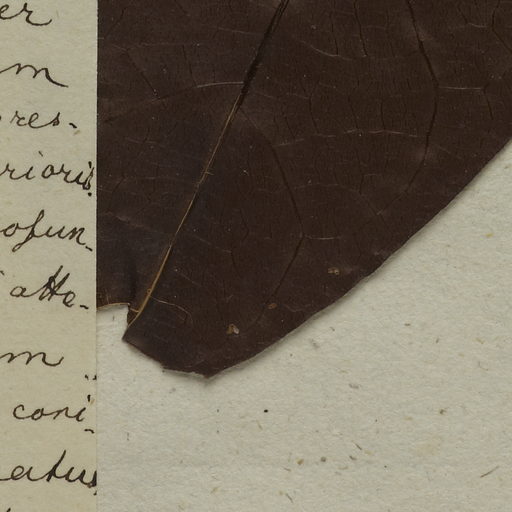 er
m
res-
rioris
ofun-
atte-
m
coni-
atus